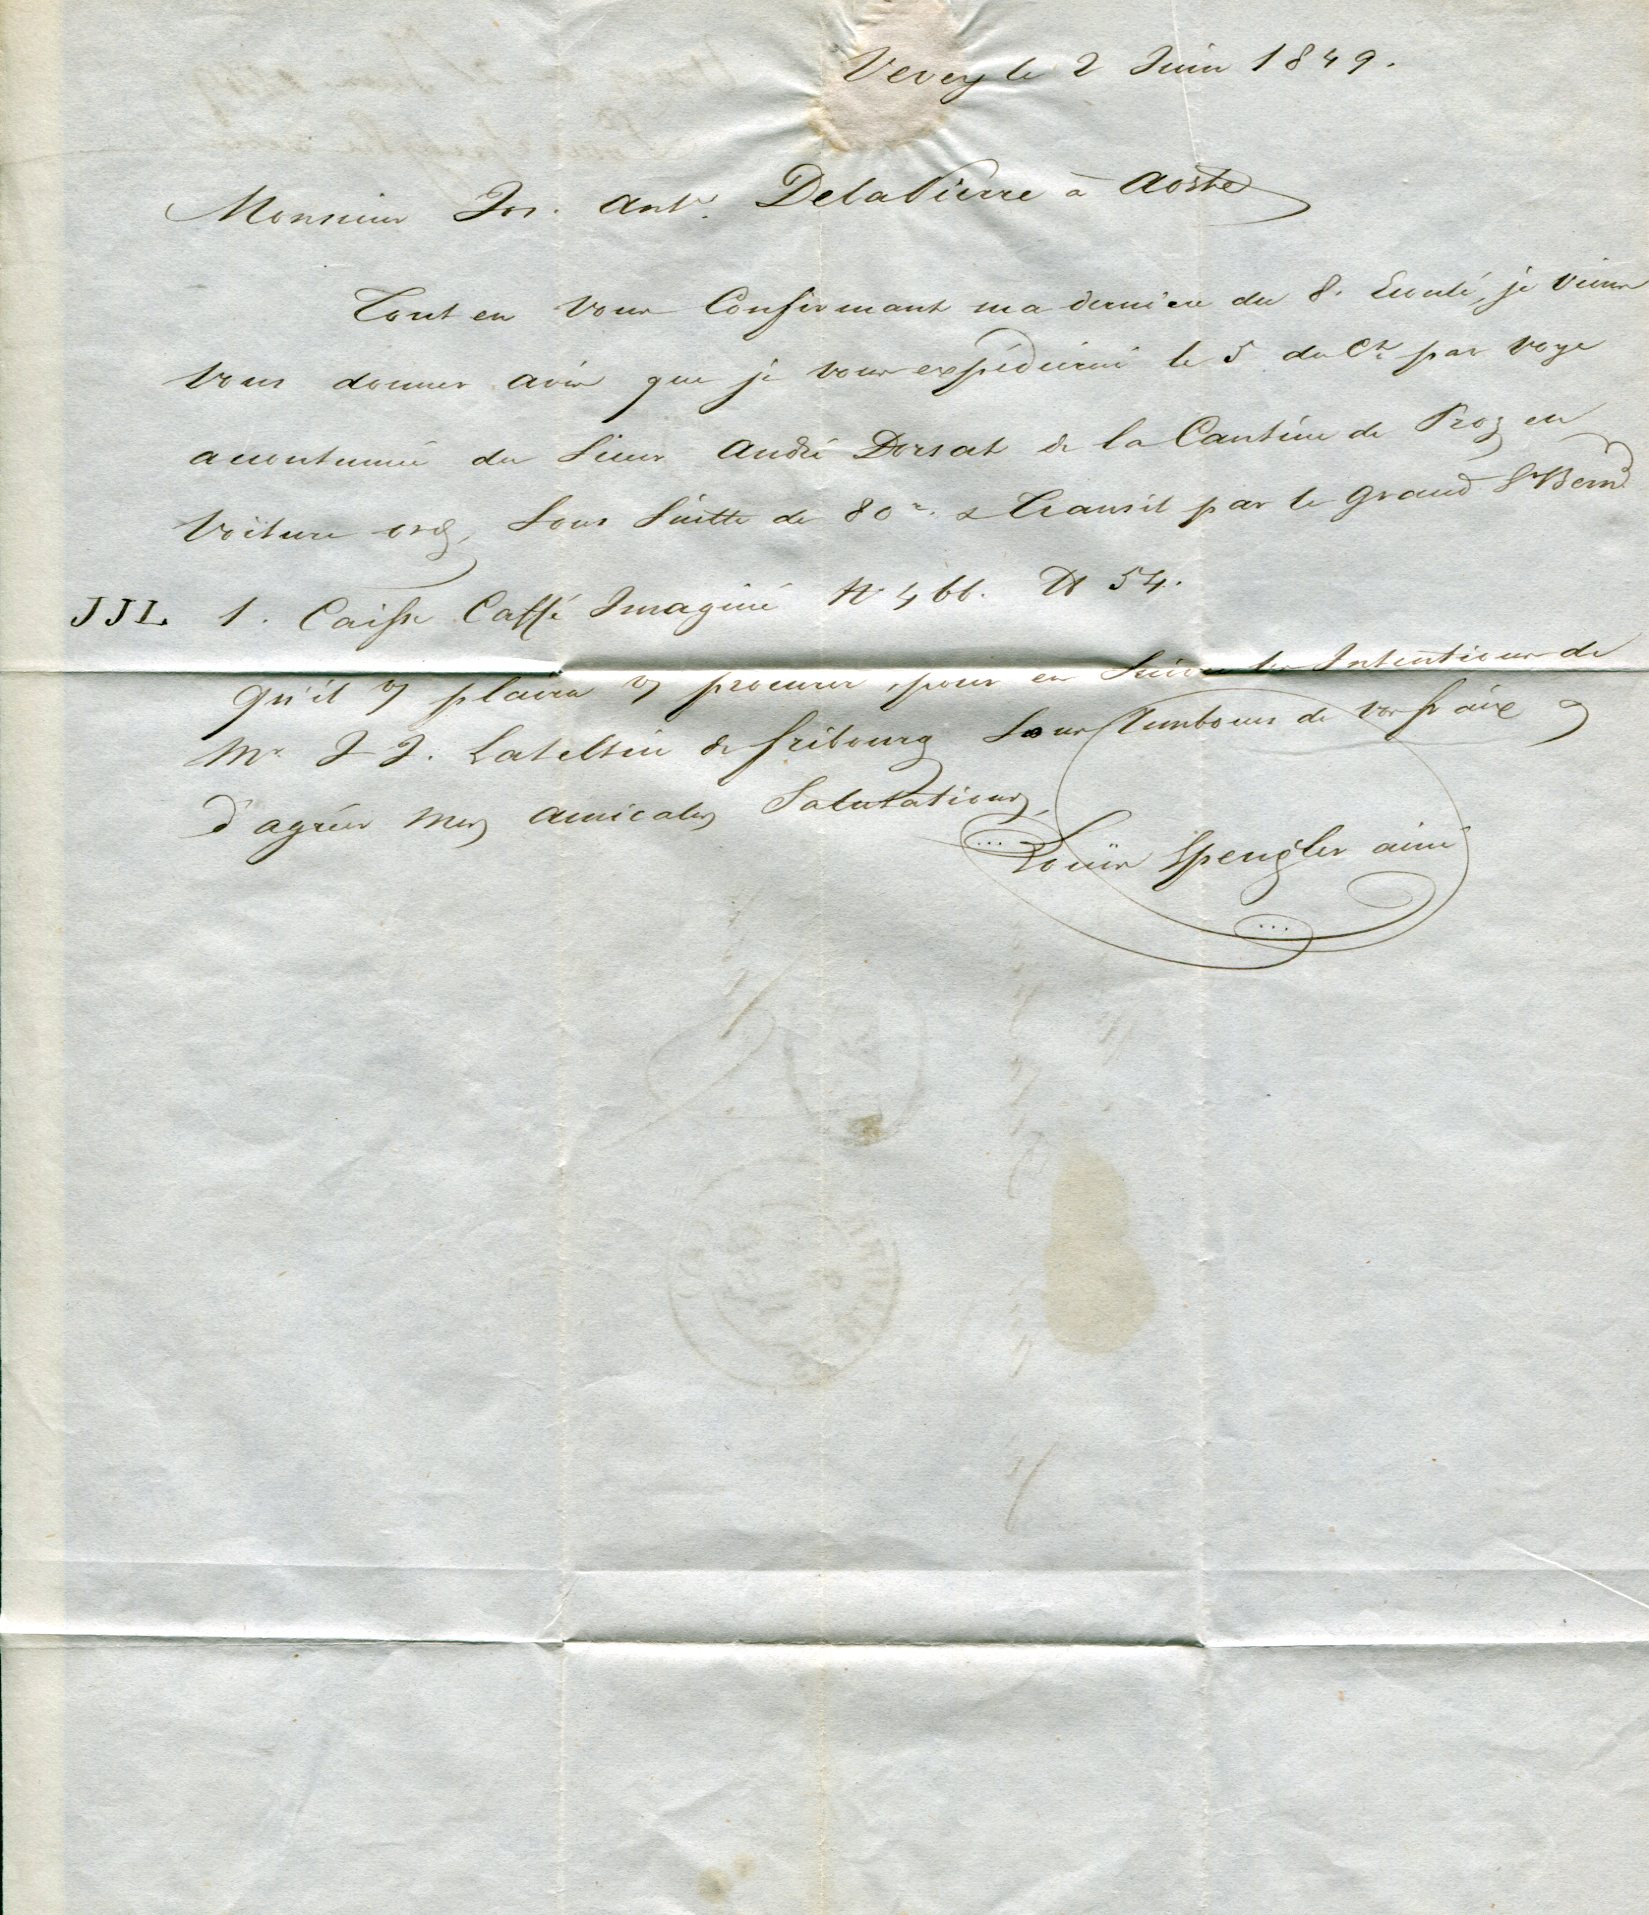 Vevey le 2 Juin 1849.
Monsieur Jos. Ante. DelaPierre à Aoste
Tout en vous Confirmant ma dernière du 8. Ecoulé, je viens
vous donner avis que je vous expédierai le 5 du Ct par voye
accoutumée du Sieur André Dorsat de la Cantine de Proz en
voiture ordre, Sous Suitte de 80 & transit par le Grand St Bernd
JJL 1. Caisse Caffé Imaginé No 466. 54.
qu'il v plaira v procurer, pour en Suivre les Intentions de
Mr J J. Lateltin de fribourg Sous Rembours de vos fraix &
d'agréer Mes amicales Salutations,
Louis Spengler ainé